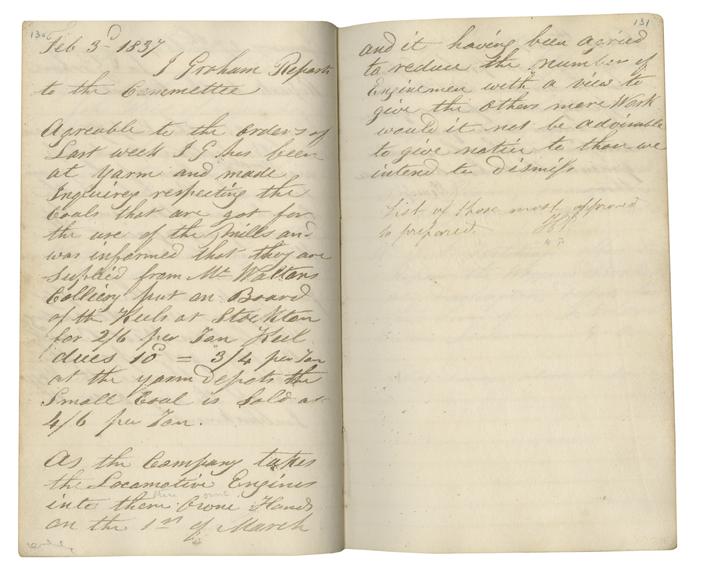 130
Feb 3d 1837
I Graham Reports
to the Committee
Agreable to the orders of
Last week I G has been
at Yarm and made
Inquirey respecting the
Coals that are got for
the use of the Mills and
was informed that they are
Supplied from Mr Waltons
Colliery put on Board
of the Keels at Stockton
for 2/6 per Ton Keel
dues 10d = 3/4 per Ton
at the yarm Depots the
Small Coal is Sold at
4/6 per Ton.
As the Company takes
the Locomotive Engines
into there own
into them Crone Hands
on the 1st of March
131
and it having been agried
to reduce the number of
Enginemen with a view to
give the others more Work
would it not be advisable
to give notice to those we
intend to Dismiss
List of those most approved
to prepared